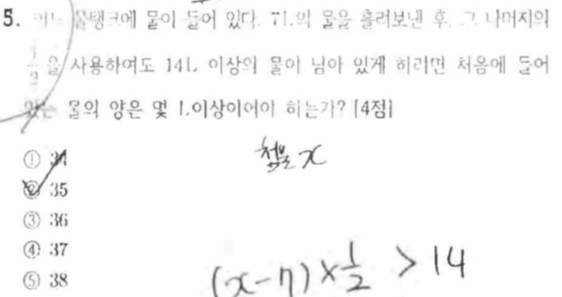 5. 어느 물탱크에 물이 들어 있다. 7L의 물을 흘러보낸 후, 그 나머지의
1/2을 사용하여도 14L 이상의 물이 남아 있게 하려면 처음에 들어
있는 물의 양은 몇 L이상이어야 하는가? [4점]
① 34
② 35
③ 36
④ 37
⑤ 38
x
(x-7)×1/2 > 14